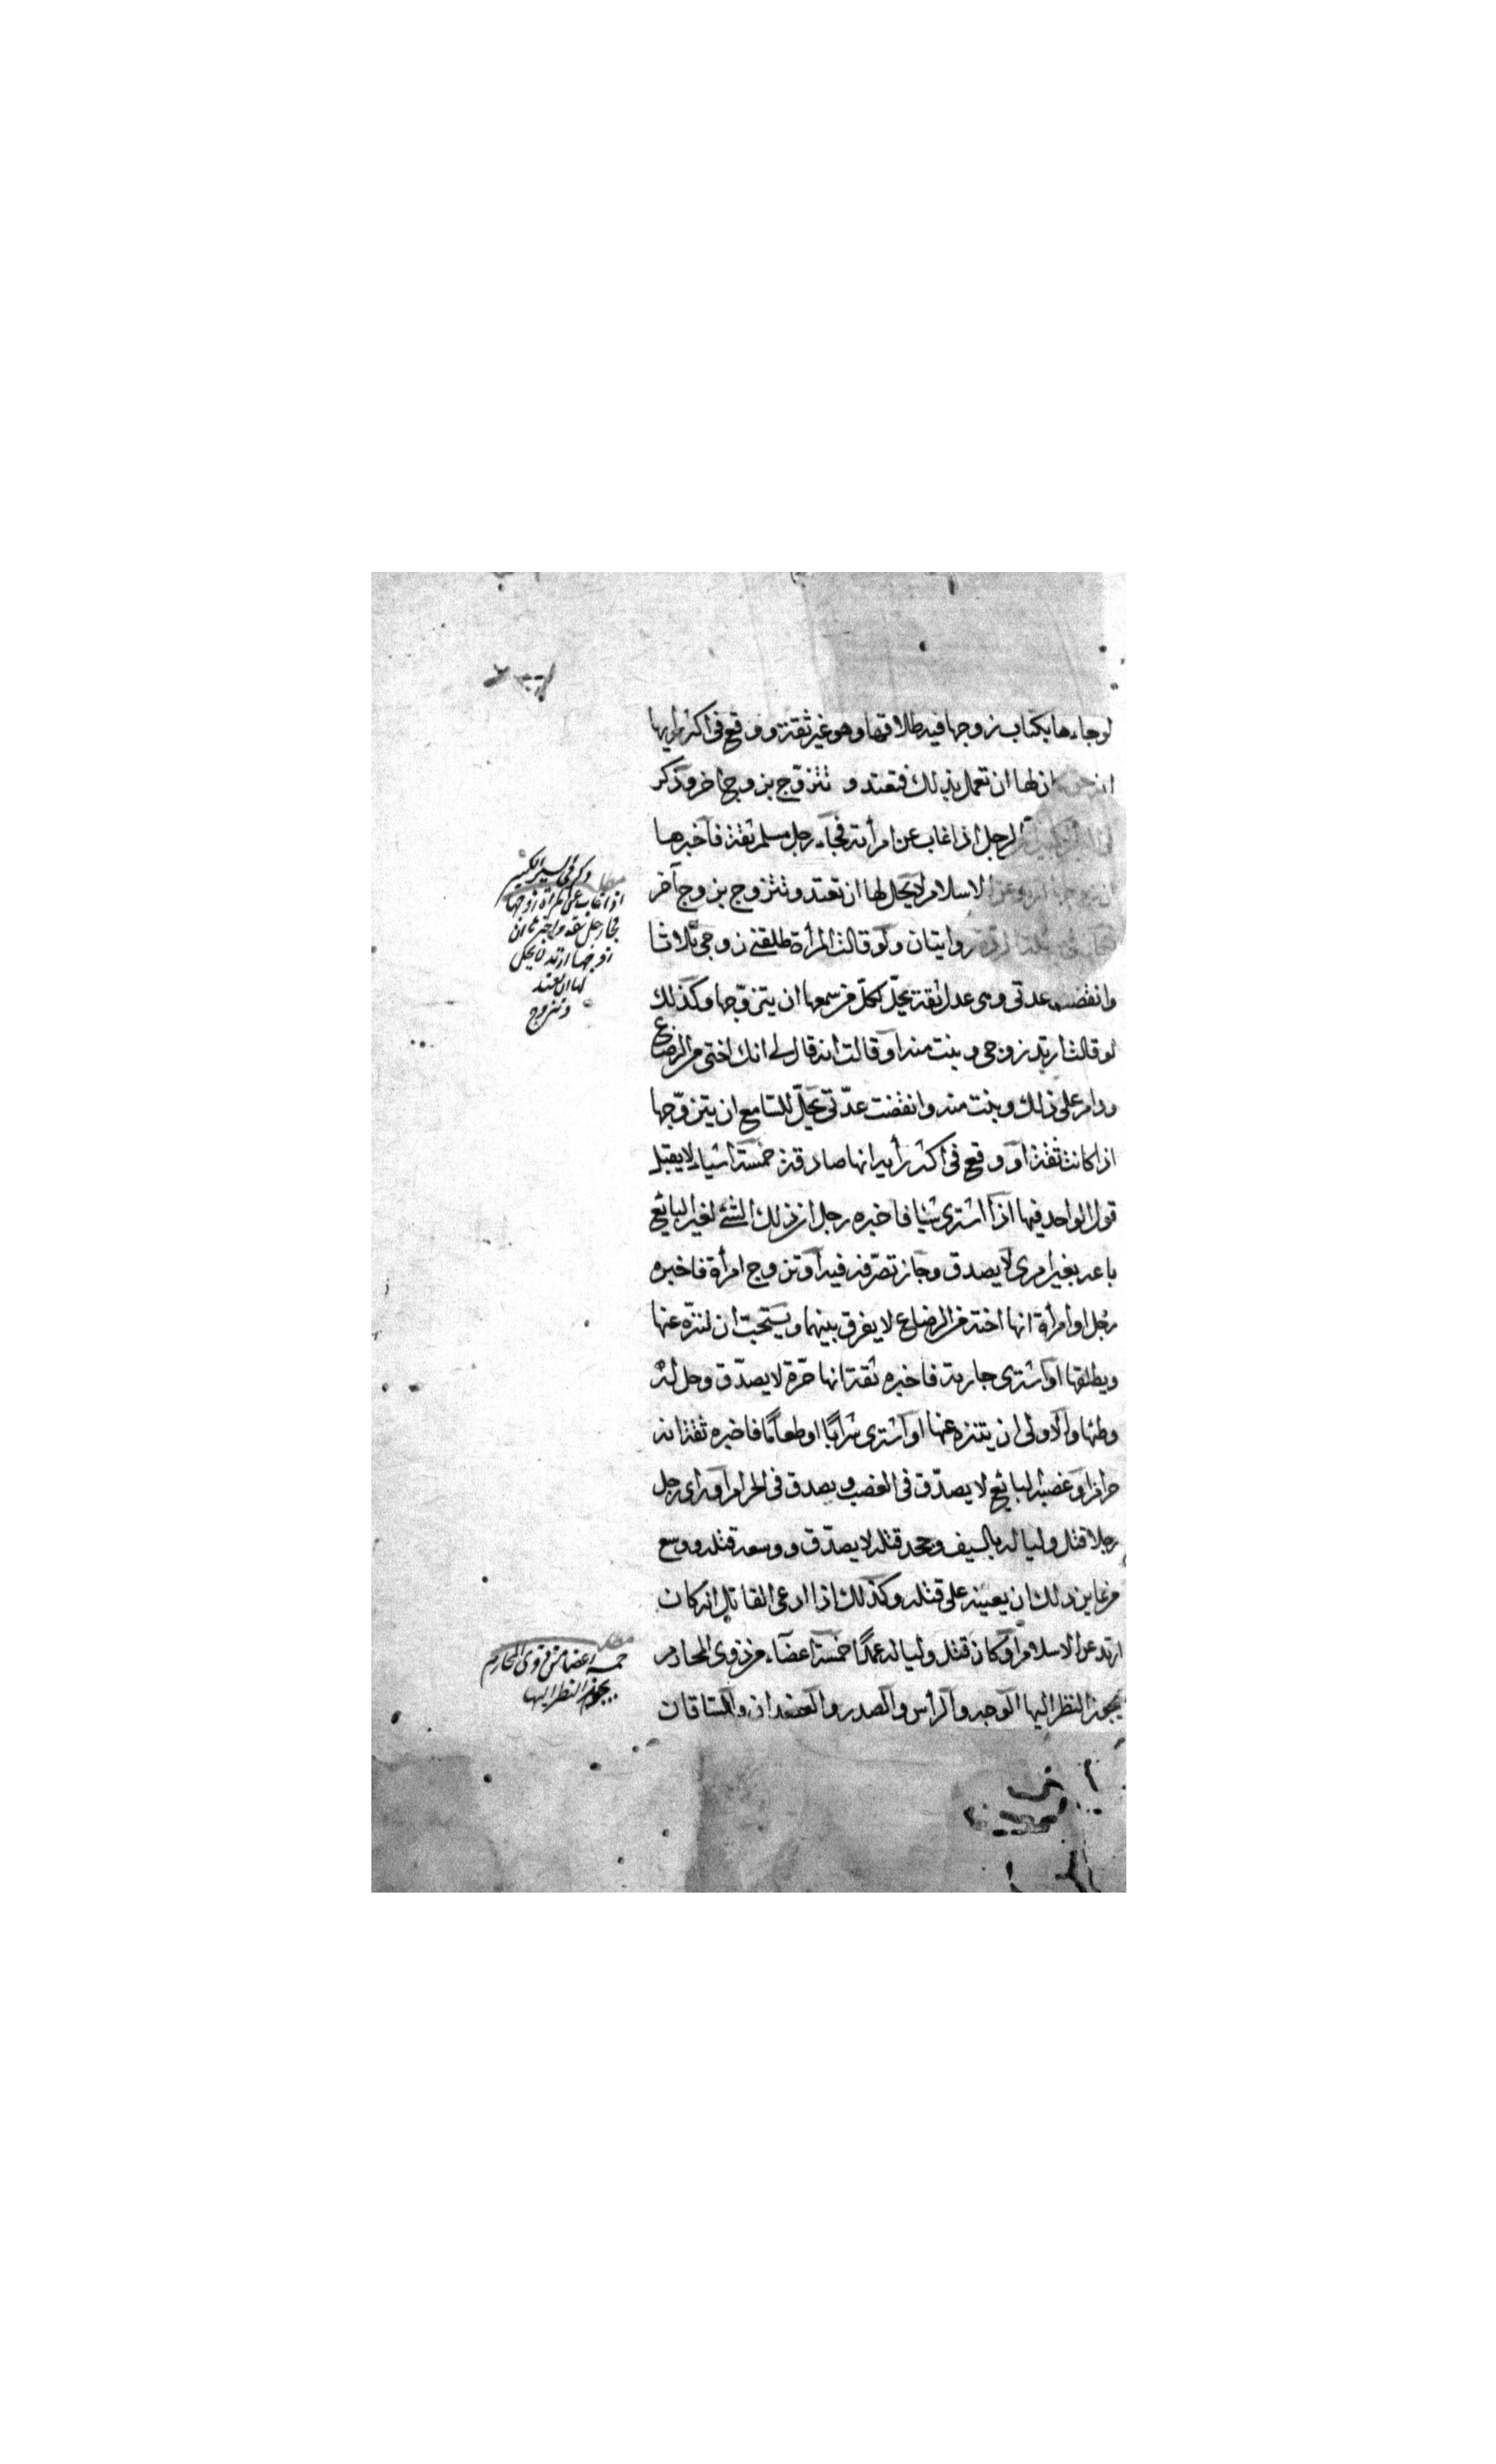 لوجاءها بكتاب زوجها فيه طلاقها وهو غير ثقة ووقع في اكثر رايها
لها ان تعمل بذلك فتعتد و تتزوج بزوج اخر وذكر
الرجل اذا غاب عن امرأته فجاء رجل مسلم ثقة فاخبرها
الاسلام لا يحل لها ان تعتد وتتزوج بزوج آخر
روايتان ولو قالت المرأة طلقني زوجي ثلاثا
وانقضت عدتي وهي عدل ثقة يحل لكل من سمعها ان يتزوجها وكذلك
لو قالت ارتد زوجي وبنت منه او قالت انه قال لي انك اختي من الرضاع
ودام على ذلك وبنت منه وانقضت عدتي يحل للسامع ان يتزوجها
اذا كانت ثقة او وقع في اكثر رأيه انها صادقة خمسة اشياء لا يقبل
قول الواحد فيها اذا اشترى شيئا فاخبره رجل ان ذلك الشئ لغير البايع
باعه بغير امرى لا يصدق وجاز تصرفه فيه او تزوج امرأة فاخبره
رجل او امرأة انها اخته من الرضاع لا يفرق بينهما ويستحب ان تنزه عنها
ويطلقها او اشترى جارية فاخبره ثقة انها حرة لا يصدق وحل له
وطئها والاولى ان يتنزه عنها او اشترى شرابا او طعاما فاخبره ثقة انه
حرام او غصبه البايع لا يصدق في الغصب ويصدق في الحرام او راى رجل
رجلا قتل وليا له بالسيف وجحد قتله لا يصدق ووسعه قتله ووسع
من عاين ذلك ان يعينه على قتله وكذلك اذا ادعى القاتل انه كان
ارتد عن الاسلام او كان قتل وليا له عمدا خمسة اعضاء من ذوى المحارم
يجوز النظر اليها الوجه والرأس والصدر والعضدان والساقان
ذكر في السير الكبير
اذا غاب عن المرأة زوجها
فجاء رجل ثقة واخبرها ان
زوجها ارتد لا يحل
لها ان تعتد
وتتزوج
خمسة اعضا من ذوى المحارم
يجوز النظر اليها